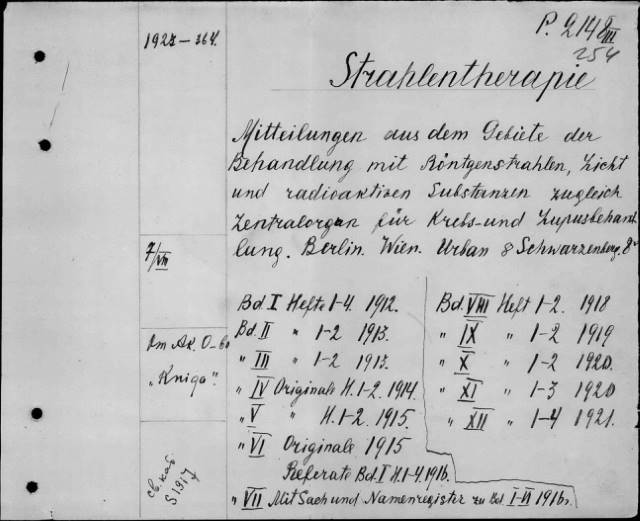 P. 2148 III
254
1927 - 364.
Strahlentherapie
Mitteilungen aus dem Gebiete der
Behandlung mit Röntgenstrahlen, Licht
und radioaktiven Substanzen zugleich
Zentralorgan für Krebs- und Lupusbehand
lung. Berlin. Wien. Urban & Schwarzenberg. 8º
7/VII
От Ак. О-во
"Kniga".
св. каб
S 1917
Bd. I Hefte 1-4. 1912.
Bd. II " 1-2 1913.
" III " 1-2 1913.
" IV Originale H. 1-2. 1914.
" V " H. 1-2. 1915.
" VI Originale 1915
Referate Bd. I H. 1-4. 1916.
" VII Mit Sach und Namenregister zu Bd. I-VI 1916.
Bd. VIII Heft 1-2. 1918
" IX " 1-2 1919
" X " 1-2 1920.
" XI " 1-3 1920
" XII " 1-4 1921.